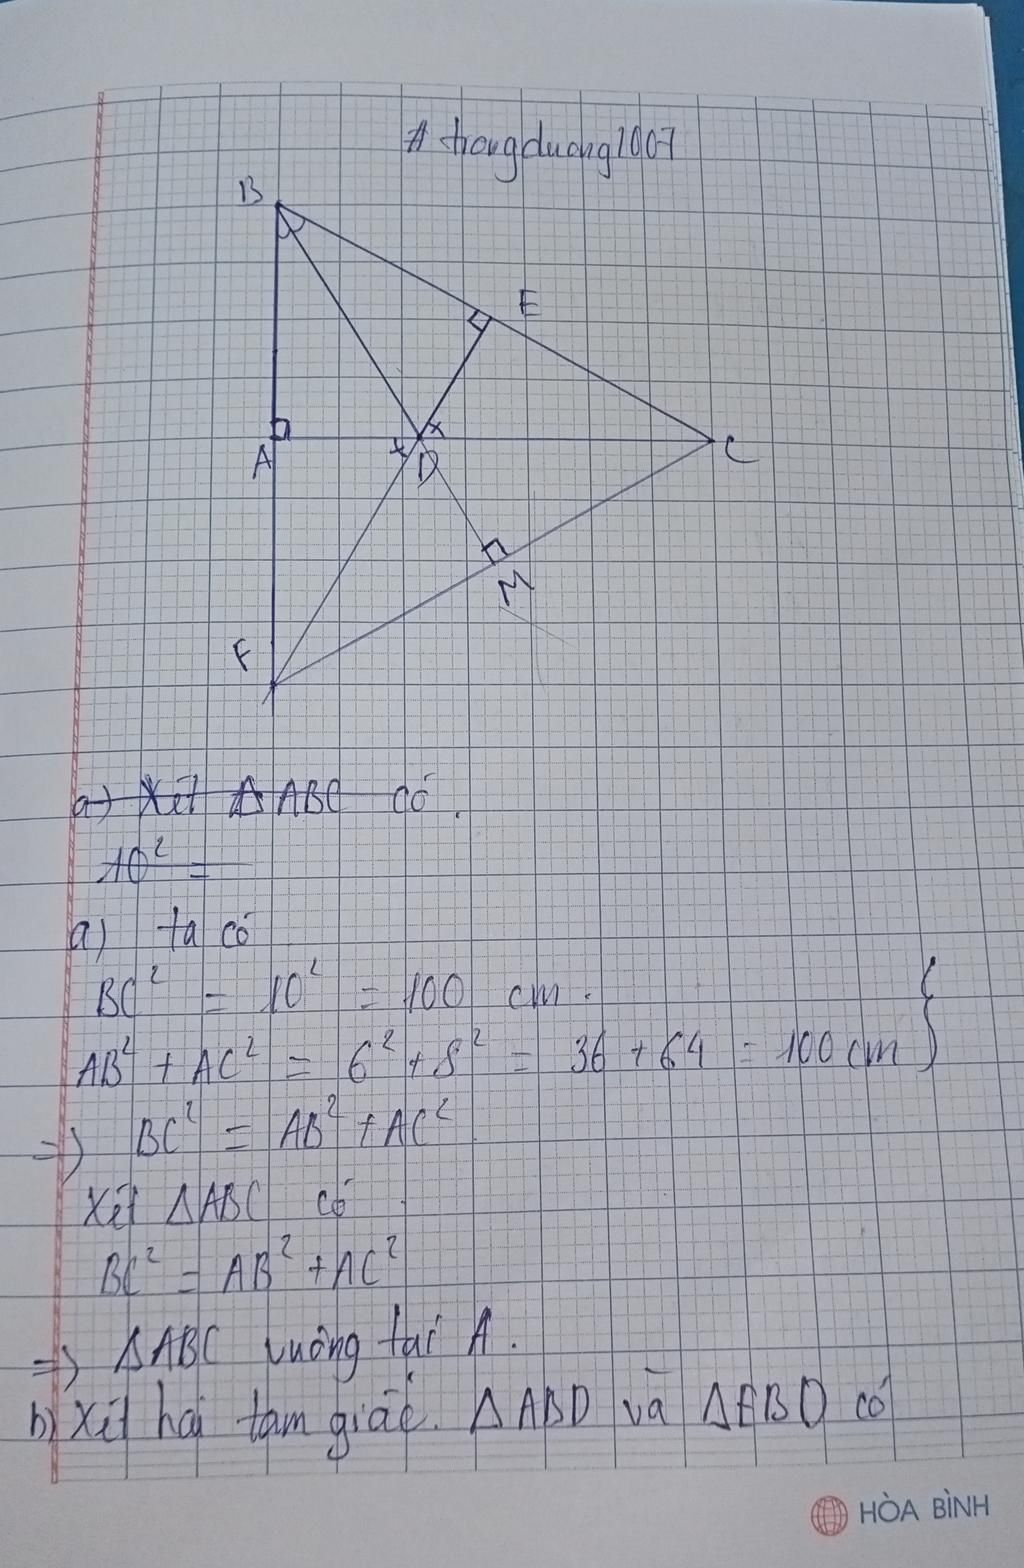 # trongduong1007
B
E
A
D
C
M
F
a) Xét Δ ABC có.
AC² =
a) ta có
BC² = 10² = 100 cm.
AB² + AC² = 6² + 8² = 36 + 64 = 100 cm }
=> BC² = AB² + AC²
Xét ΔABC có
BC² = AB² + AC²
=> ΔABC vuông tại A.
b) Xét hai tam giác. ΔABD và ΔEBD có
HÒA BÌNH